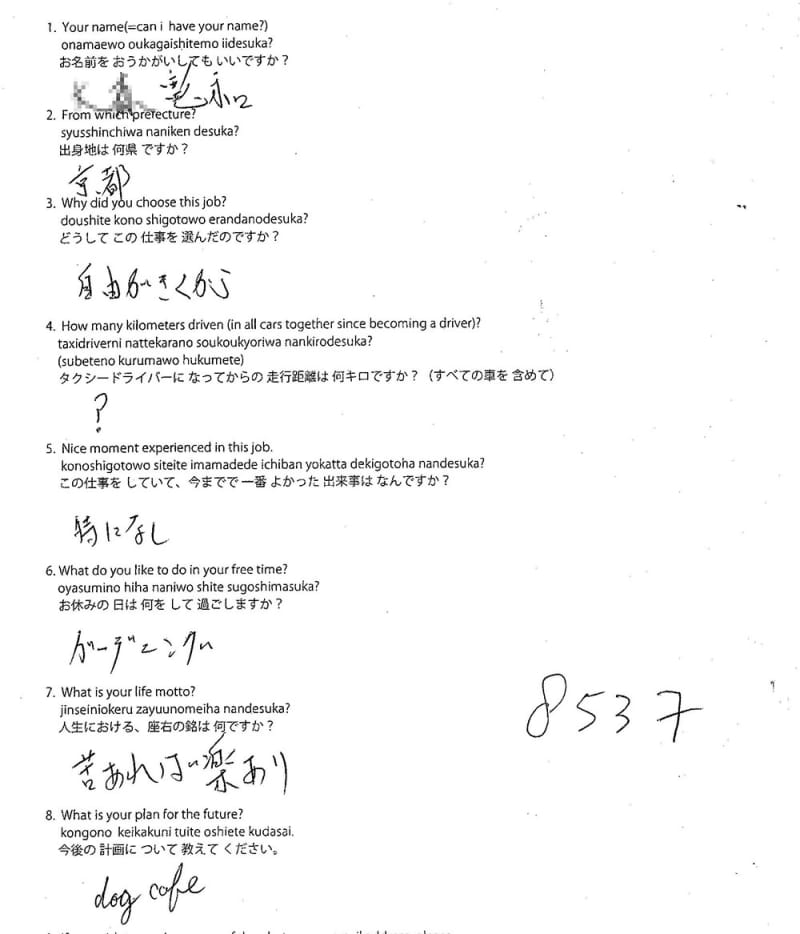 1. Your name(=can i have your name?)
onamaewo oukagaishitemo iidesuka?
お名前を おうかがいしても いいですか？
2. From which prefecture?
syusshinchiwa naniken desuka?
出身地は 何県 ですか？
京都
3. Why did you choose this job?
doushite kono shigotowo erandanodesuka?
どうして この 仕事を 選んだのですか？
自由がきくから
4. How many kilometers driven (in all cars together since becoming a driver)?
taxidriverni nattekarano soukoukyoriwa nankirodesuka?
(subeteno kurumawo hukumete)
タクシードライバーに なってからの 走行距離は 何キロですか？（すべての車を 含めて）
?
5. Nice moment experienced in this job.
konoshigotowo siteite imamadede ichiban yokatta dekigotoha nandesuka?
この仕事を していて、今までで 一番 よかった 出来事は なんですか？
特になし
6. What do you like to do in your free time?
oyasumino hiha naniwo shite sugoshimasuka?
お休みの 日は 何を して 過ごしますか？
ガーデニング
7. What is your life motto?
jinseiniokeru zayuunomeiha nandesuka?
人生における、座右の銘は 何ですか？
8537
苦あれば楽あり
8. What is your plan for the future?
kongono keikakuni tuite oshiete kudasai.
今後の 計画に ついて 教えて ください。
dog cafe